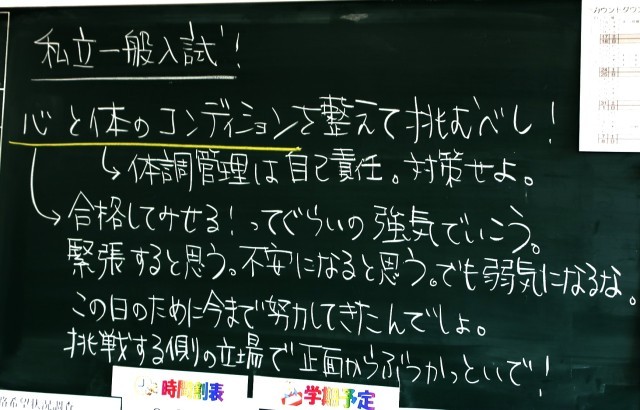 カウントダウン
私立一般入試!
心と体のコンディションを整えて挑むべし!
体調管理は自己責任。対策せよ。
合格してみせる!ってぐらいの強気でいこう。
緊張すると思う。不安になると思う。でも弱気になるな。
この日のために今まで努力してきたんでしょ。
挑戦する側の立場で正面からぶつかっといで!
時間割表
学期予定
路希望状況調査